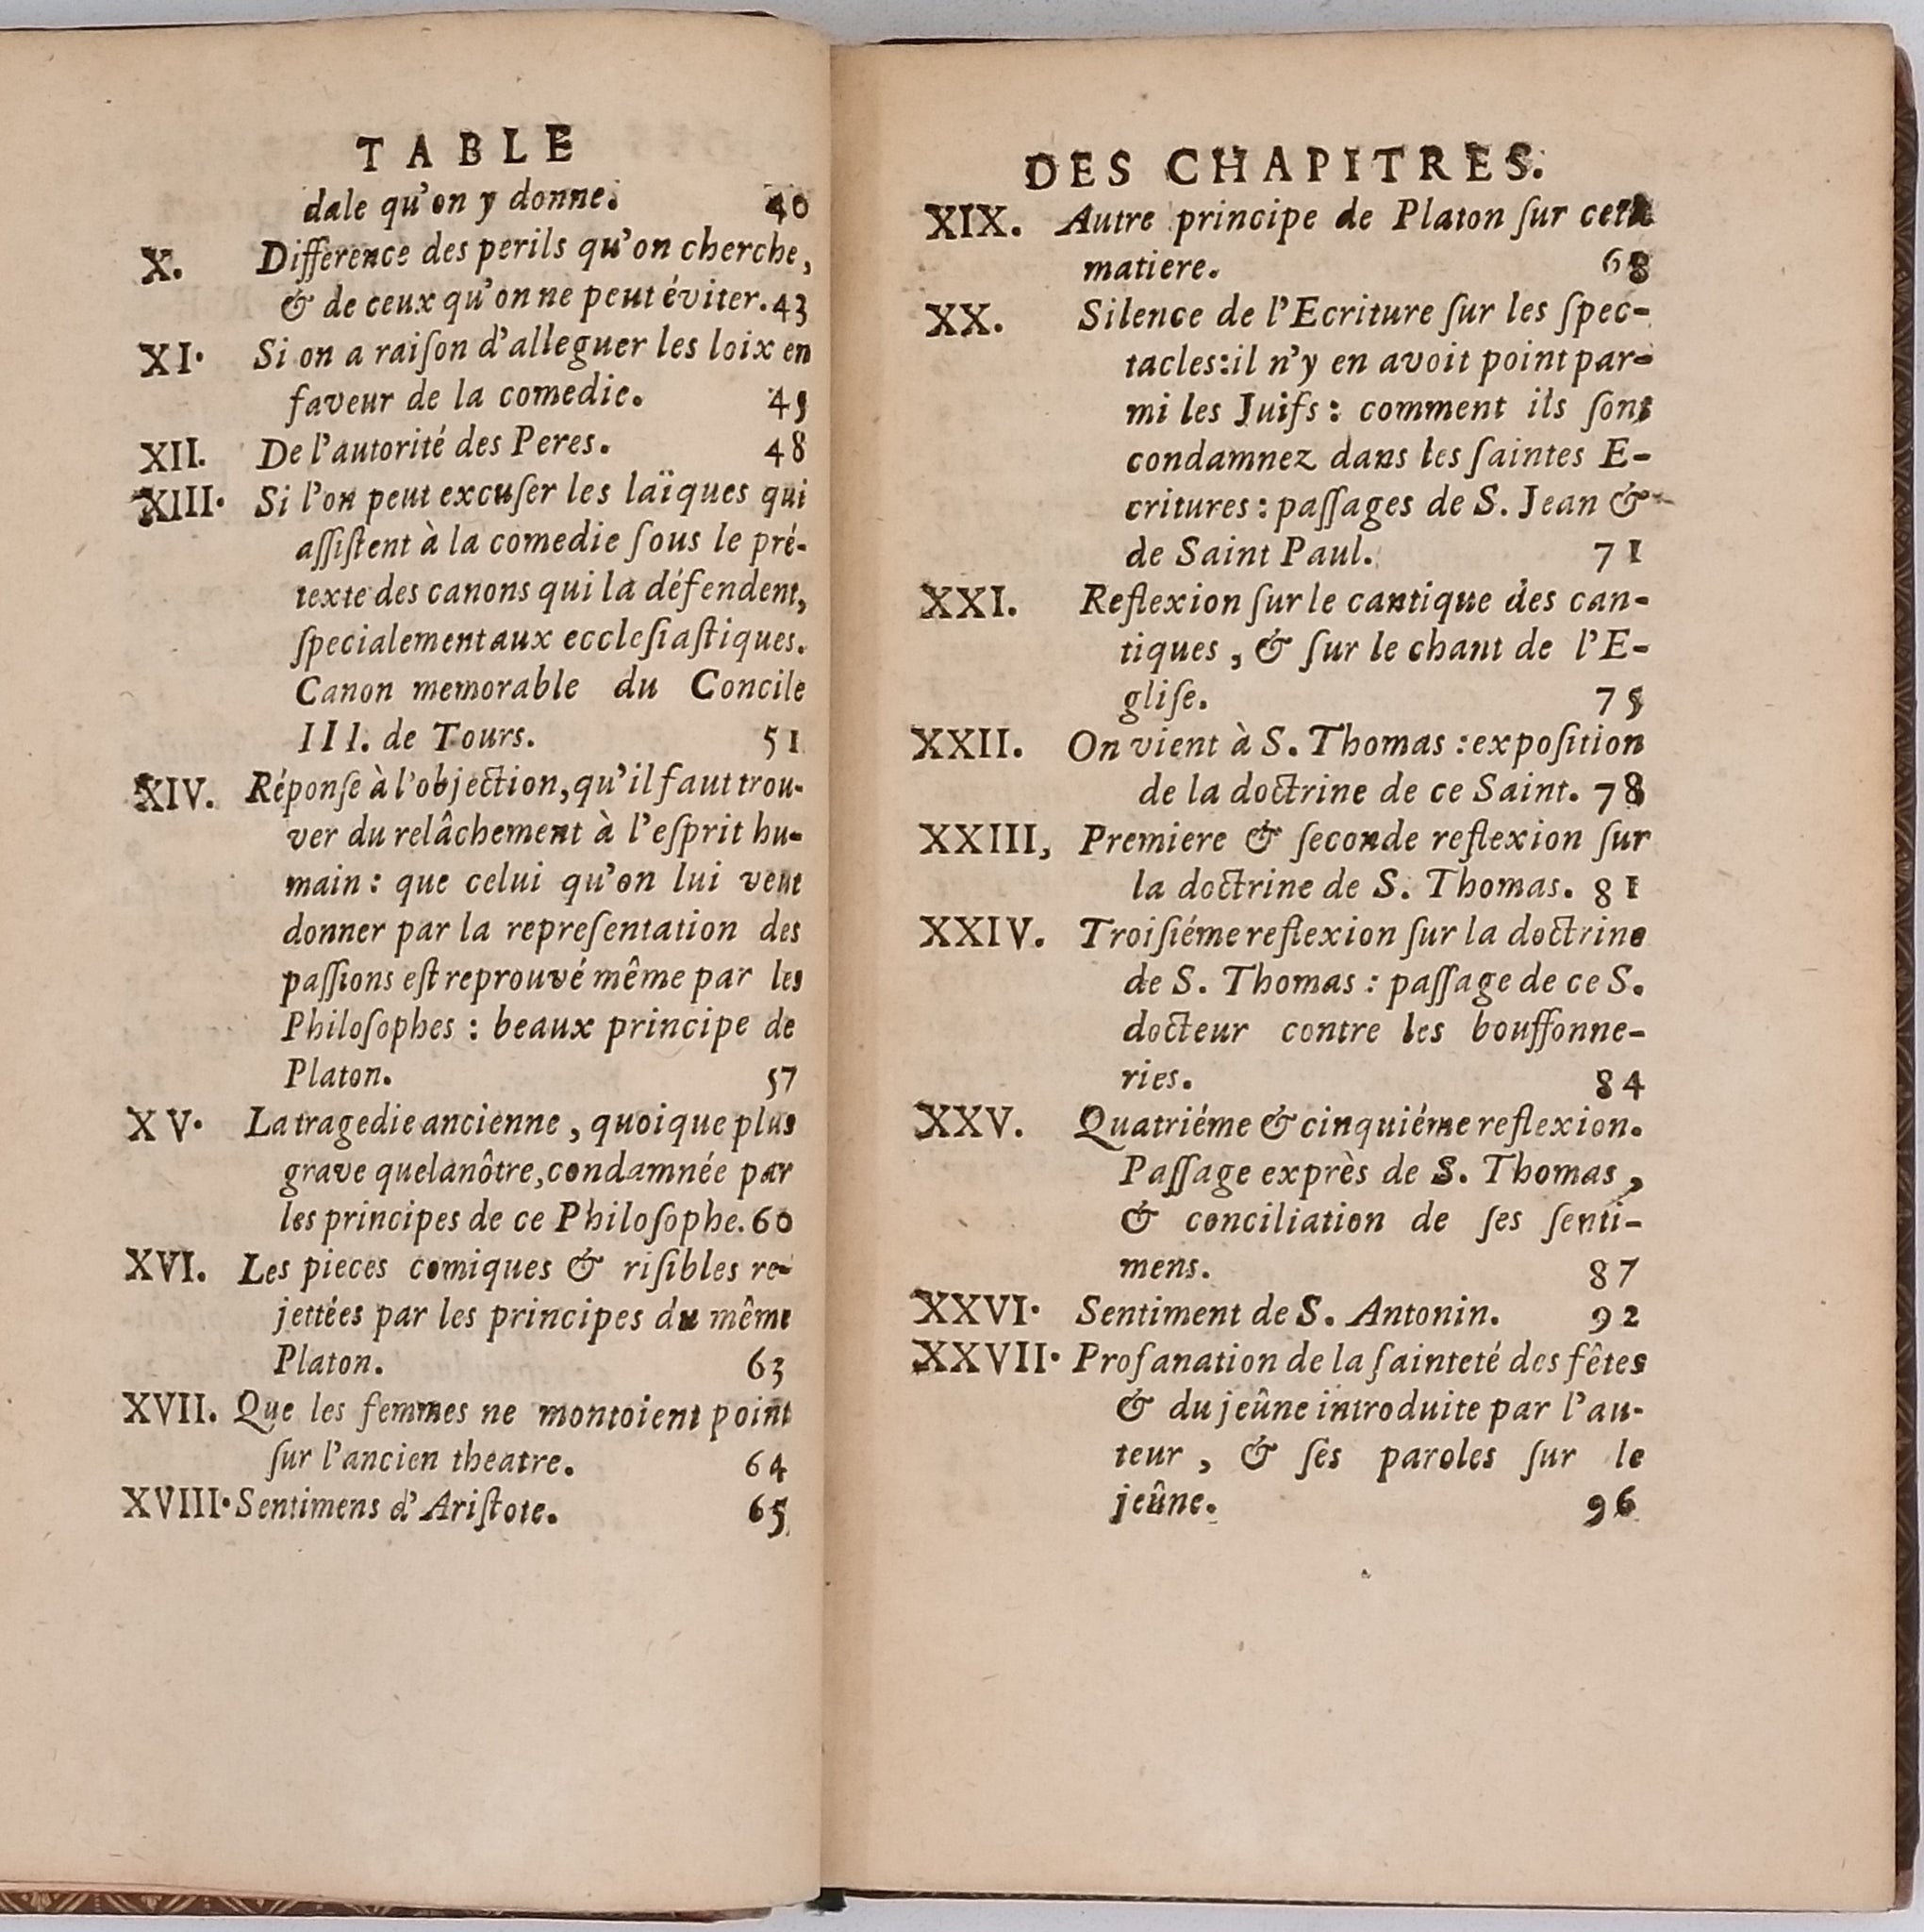 TABLE
dale qu'on y donne. 40
X. Difference des perils qu'on cherche,
& de ceux qu'on ne peut éviter. 43
XI. Si on a raiſon d'alleguer les loix en
faveur de la comedie. 45
XII. De l'autorité des Peres. 48
XIII. Si l'on peut excuſer les laïques qui
aſſiſtent à la comedie ſous le pré-
texte des canons qui la défendent,
ſpecialement aux eccleſiaſtiques.
Canon memorable du Concile
III. de Tours. 51
XIV. Réponſe à l'objection, qu'il faut trou-
ver du relâchement à l'eſprit hu-
main : que celui qu'on lui veut
donner par la repreſentation des
paſſions eſt reprouvé même par les
Philoſophes : beaux principe de
Platon. 57
XV. La tragedie ancienne, quoique plus
grave que la nôtre, condamnée par
les principes de ce Philoſophe. 60
XVI. Les pieces comiques & riſibles re-
jettées par les principes du même
Platon. 63
XVII. Que les femmes ne montoient point
ſur l'ancien theatre. 64
XVIII. Sentimens d'Ariſtote. 65
DES CHAPITRES.
XIX. Autre principe de Platon ſur cette
matiere. 68
XX. Silence de l'Ecriture ſur les ſpec-
tacles : il n'y en avoit point par-
mi les Juifs : comment ils ſont
condamnez dans les ſaintes E-
critures : paſſages de S. Jean &
de Saint Paul. 71
XXI. Reflexion ſur le cantique des can-
tiques, & ſur le chant de l'E-
gliſe. 75
XXII. On vient à S. Thomas : expoſition
de la doctrine de ce Saint. 78
XXIII, Premiere & ſeconde reflexion ſur
la doctrine de S. Thomas. 81
XXIV. Troiſiéme reflexion ſur la doctrine
de S. Thomas : paſſage de ce S.
docteur contre les bouffonne-
ries. 84
XXV. Quatriéme & cinquiéme reflexion.
Paſſage exprès de S. Thomas,
& conciliation de ſes ſenti-
mens. 87
XXVI. Sentiment de S. Antonin. 92
XXVII. Profanation de la ſainteté des fêtes
& du jeûne introduite par l'au-
teur, & ſes paroles ſur le
jeûne. 96